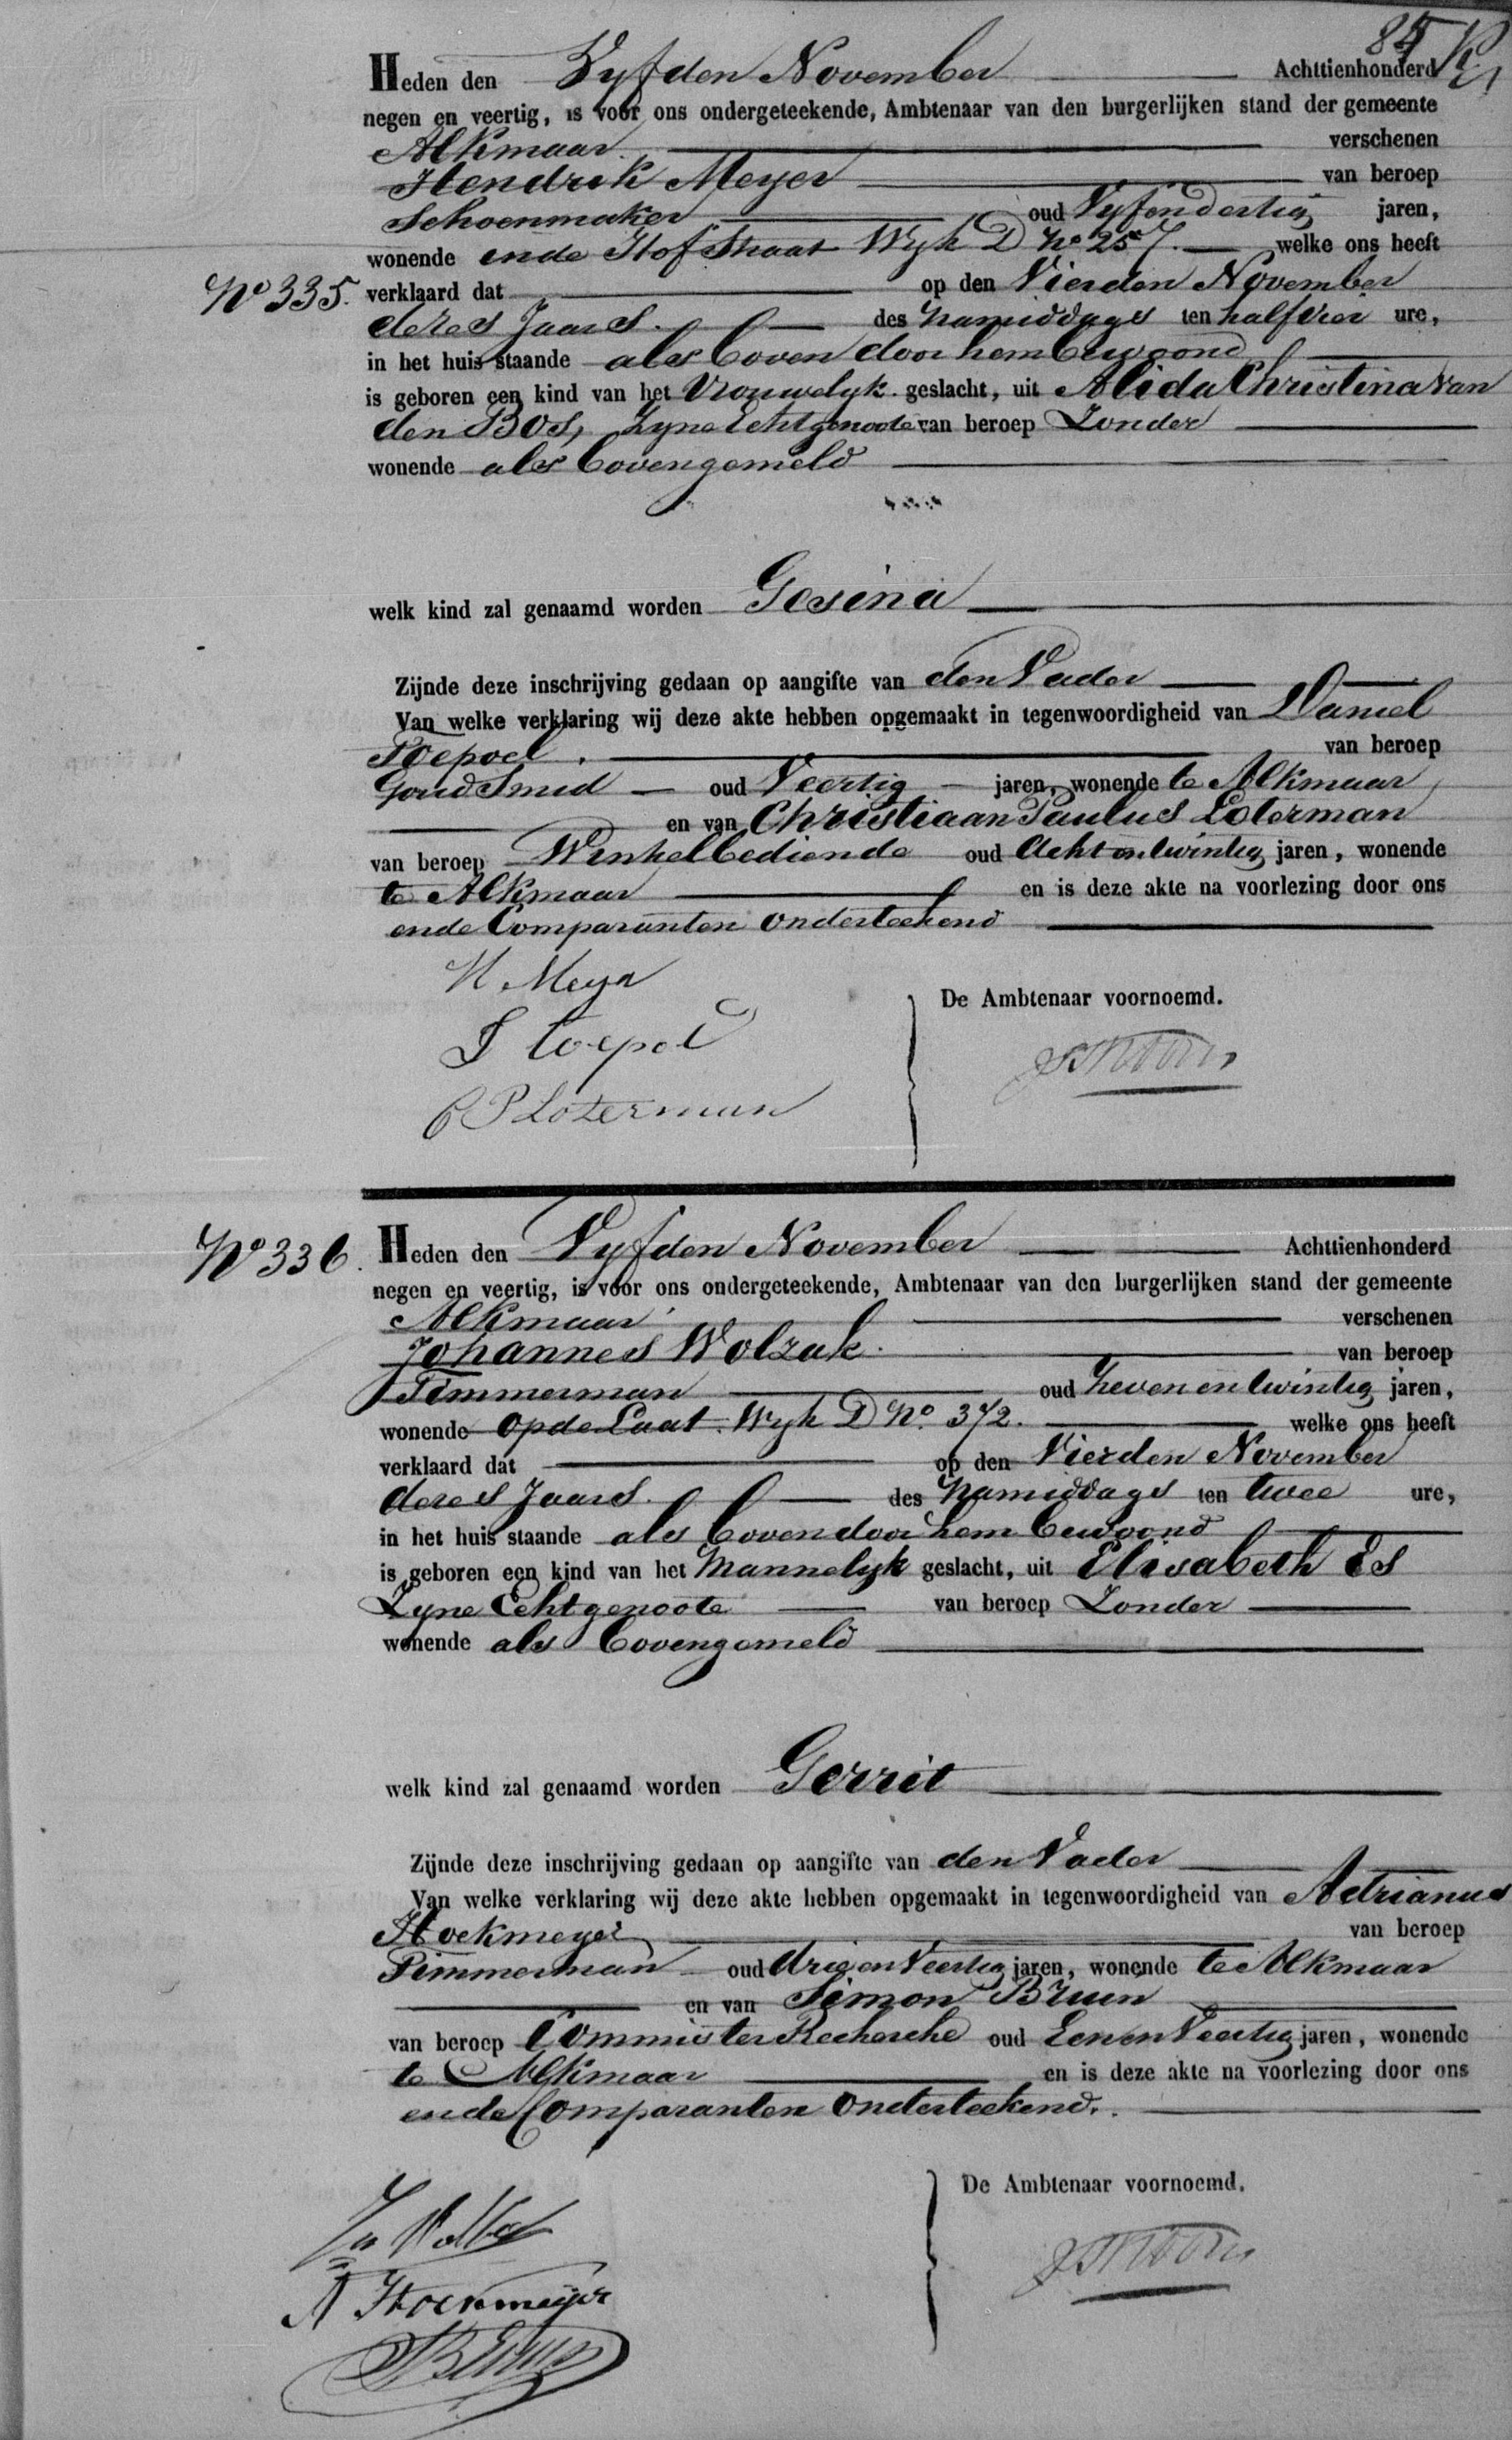 85
Heden den Vyfden November Achttienhonderd
negen en veertig, is voor ons ondergeteekende, Ambtenaar van den burgerlijken stand der gemeente
Alkmaar verschenen
Hendrik Meyer van beroep
Schoenmaker oud Vyfendertig jaren,
wonende ende Hofstraat Wyk D No 257. welke ons heeft
No 335. verklaard dat op den Vierden November
dezes Jaars. des namiddags ten half vier ure,
in het huis staande als boven door hem bewoond
is geboren een kind van het Vrouwelyk geslacht, uit Alida Christina van
den Bos, Zyne Echtgenoote van beroep Zonder
wonende als bovengemeld
welk kind zal genaamd worden Gesina
Zijnde deze inschrijving gedaan op aangifte van den Vader
Van welke verklaring wij deze akte hebben opgemaakt in tegenwoordigheid van Daniel
Toepoel. van beroep
Goud Smid oud Veertig jaren, wonende te Alkmaar
en van Christiaan Paulus Loterman
van beroep Winkelbediende oud Acht en twintig jaren, wonende
te Alkmaar en is deze akte na voorlezing door ons
ende Comparanten onderteekend
H. Meyer
De Ambtenaar voornoemd.
Toepoel
C P Loterman
No 336. Heden den Vyfden November Achttienhonderd
negen en veertig, is voor ons ondergeteekende, Ambtenaar van den burgerlijken stand der gemeente
Alkmaar verschenen
Johannes Wolzak. van beroep
Timmerman oud Zeven en twintig jaren,
wonende op de Laat. Wyk D No. 372. welke ons heeft
verklaard dat op den Vierden November
dezes Jaars. des namiddags ten twee ure,
in het huis staande als boven door hem bewoond
is geboren een kind van het Mannelyk geslacht, uit Elisabeth Es
Zyne Echtgenoote van beroep Zonder
wonende als bovengemeld
welk kind zal genaamd worden Gerrit
Zijnde deze inschrijving gedaan op aangifte van den Vader
Van welke verklaring wij deze akte hebben opgemaakt in tegenwoordigheid van Adrianus
Hoekmeyer van beroep
Timmerman oud drie en Veertig jaren, wonende te Alkmaar
en van Simon Bruin
van beroep Commis ter Recherche oud Een en Veertig jaren, wonende
te Alkmaar en is deze akte na voorlezing door ons
ende Comparanten onderteekend.
De Ambtenaar voornoemd.
A Hoekmeijer
S Bruin